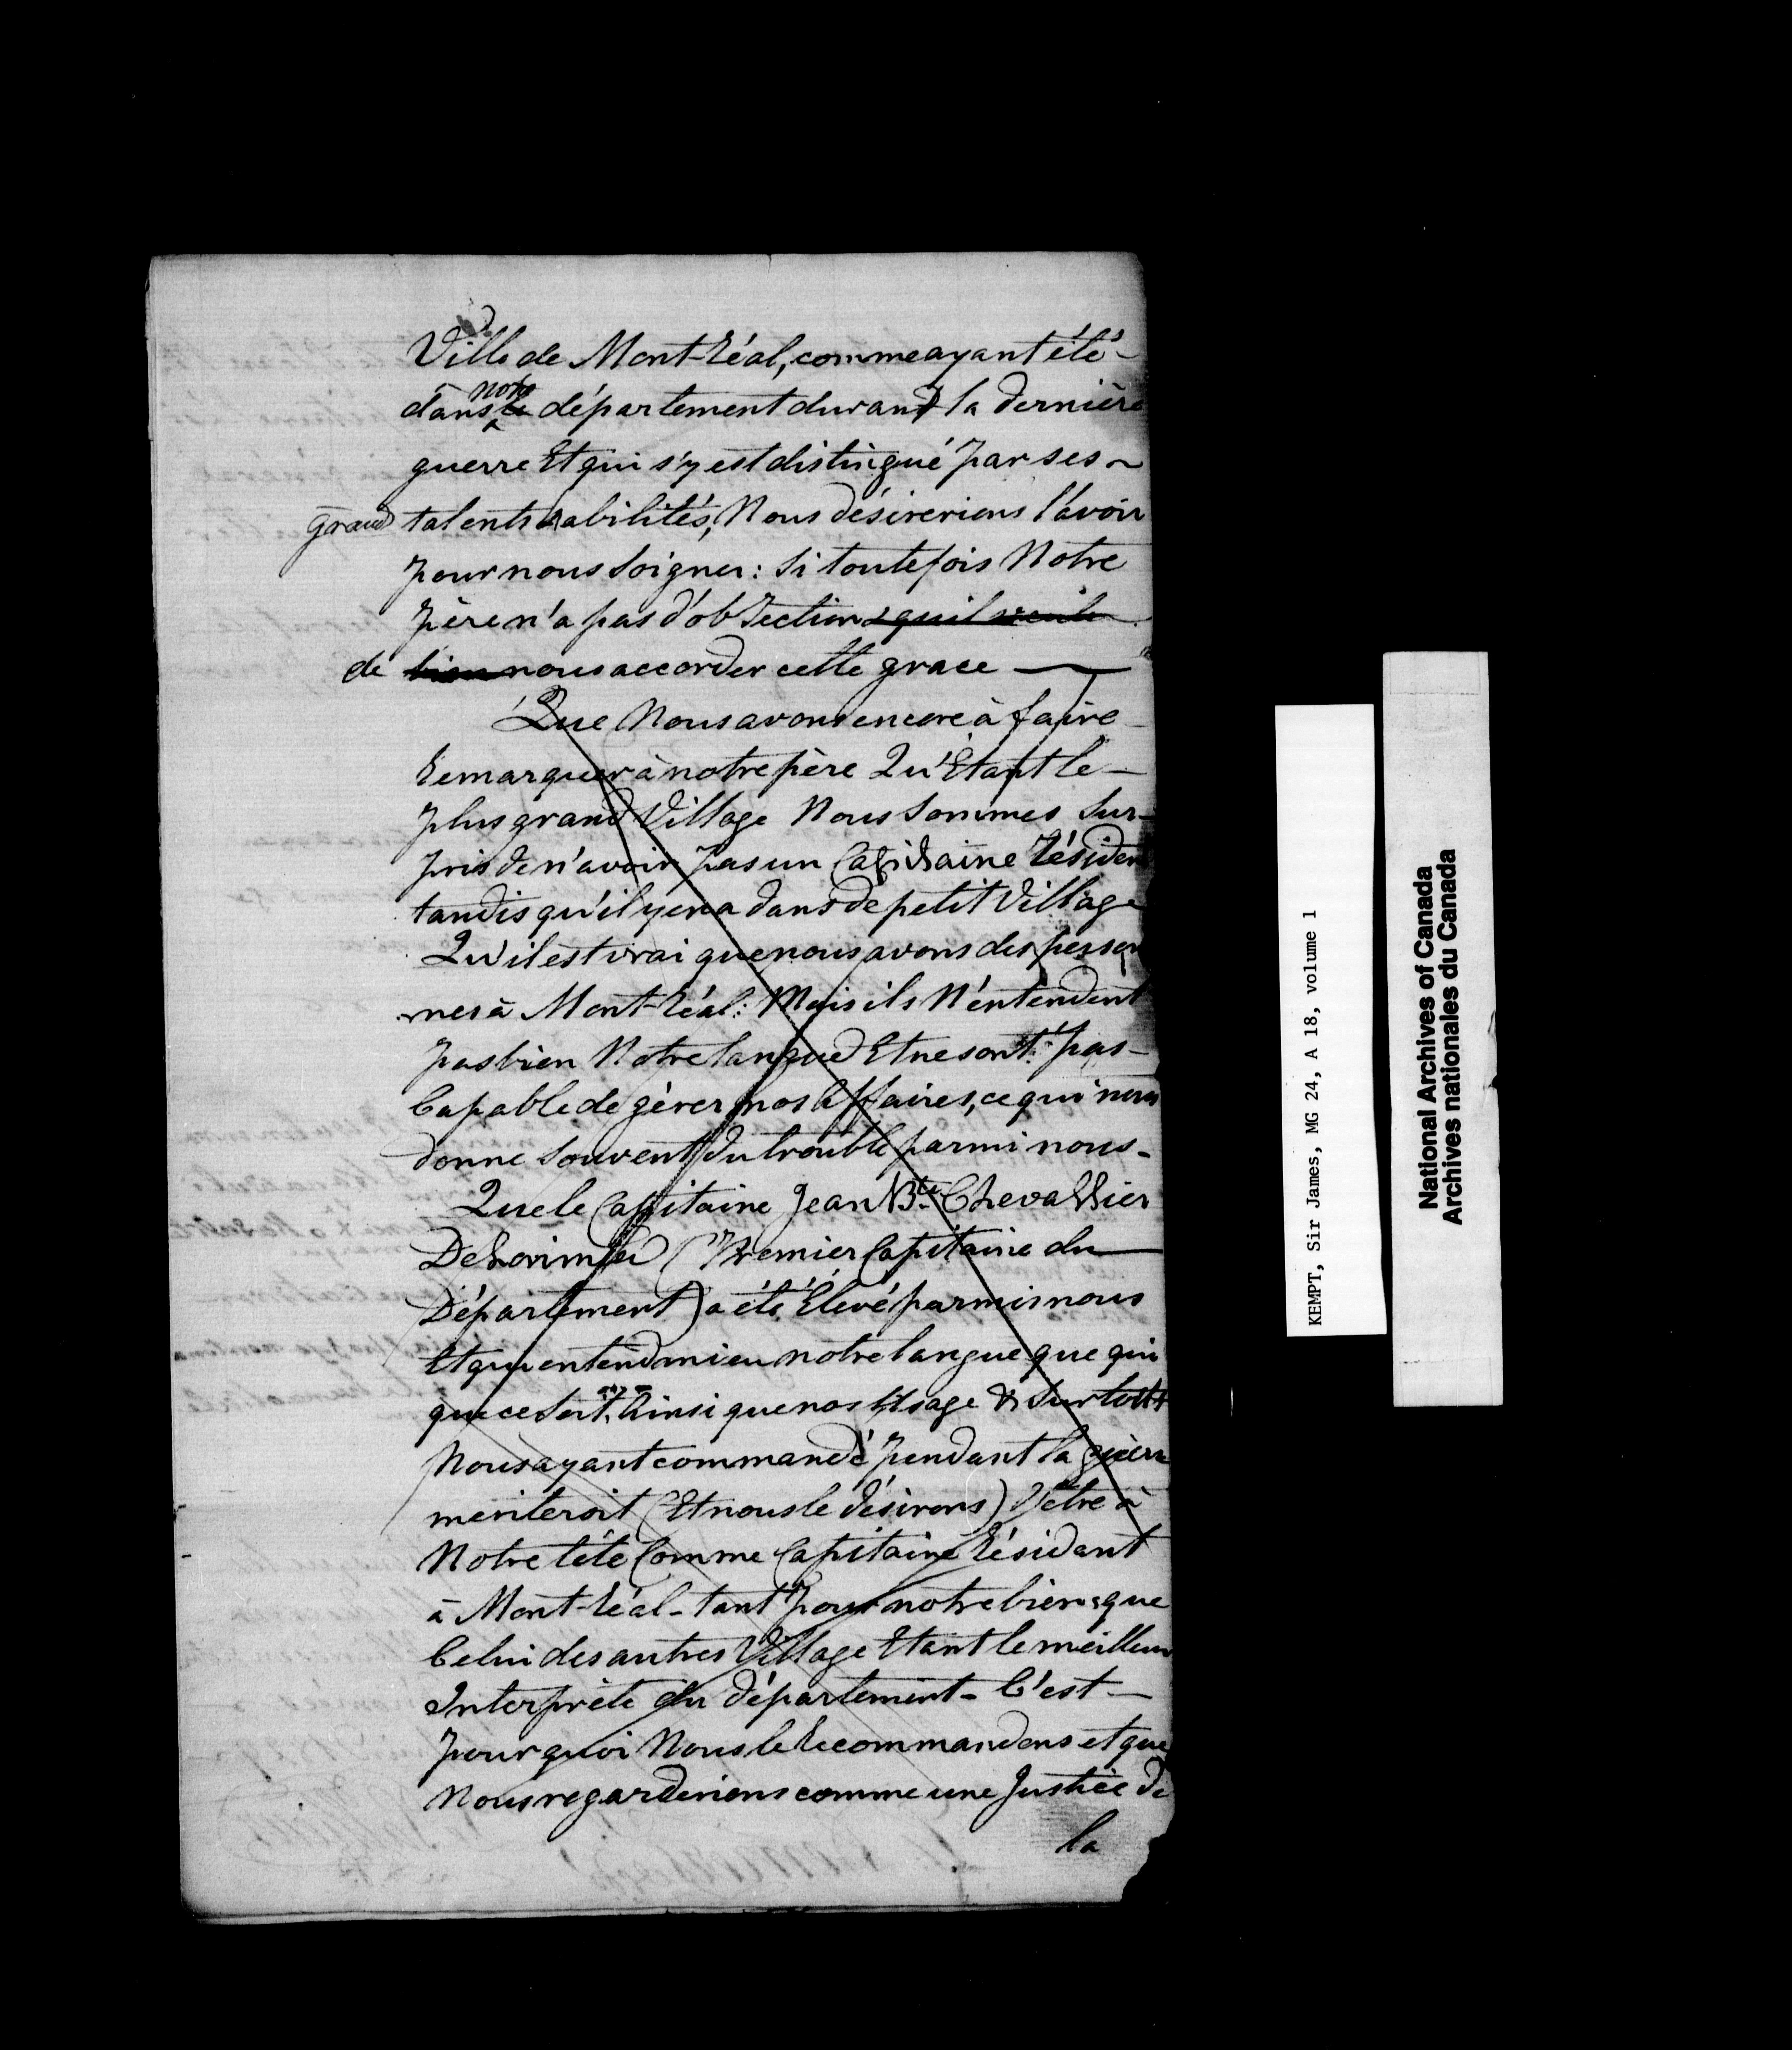 Ville de Mont-réal, comme ayant été -
notre
dans le département durant la dernière
guerre Et qui s'y est distingué par ses ~
grand talents & abilités, Nous désirerions l'avoir
pour nous soigner : Si toutefois Notre
père n'a pas d'objection & quil veuile
de bien nous accorder cette grace —
Que Nous avons encore à faire
Remarquer à notre père Qu'Etant le -
plus grand Village Nous Sommes Sur-
pris de n'avoir pas un Capitaine Résiden
tandis qu'il y en a dans de petit Village
Qu'il est vrai que nous avons des person
nes à Mont-réal : Mais ils N'entendent
pas bien Notre langue Et ne sont pas -
Capable de gérer nos Affaires, ce qui nous
donne Souvent du trouble parmi nous -
Que le Capitaine Jean Bte. Chevallier
DeLorimier (Premier Capitaine du
Département) a été Elevé parmis nous
Et qui entend mieu notre langue que qui
que ce soit, Ainsi que nos Usage & Surtout
Nous ayant commandé pendant la guerre
meriteroit (Et nous le désirons) d'etre à
Notre tête Comme Capitaine Résidant
à Mont-réal - tant pour notre bien, que
Celui des autres Village Etant le meilleur
Interprète du département - C'est -
pourquoi Nous le Recommandons et que
Nous regarderions comme une Justice de
la
KEMPT, Sir James, MG 24, A 18, volume 1
National Archives of Canada
Archives nationales du Canada